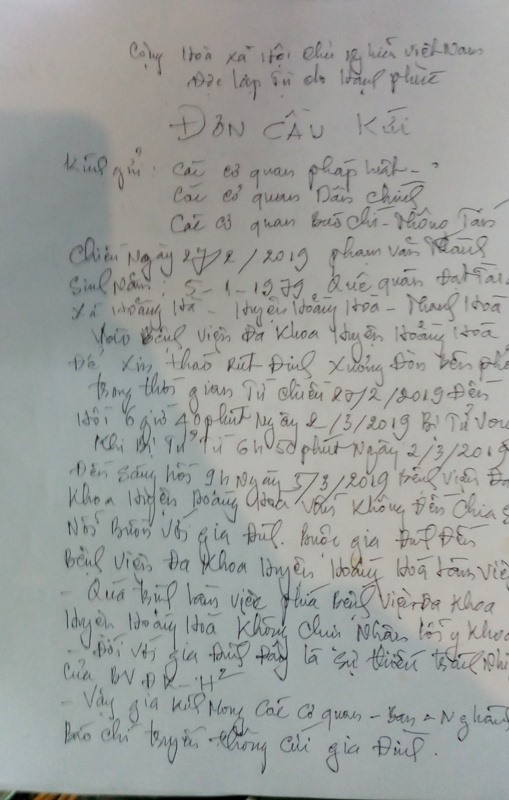 Cộng Hoà xã Hội chủ nghĩa việt Nam
Độc lập Tự do Hạnh phúc
ĐƠN CẦU KỨU
Kính gửi: Các cơ quan pháp luật -
Các cơ quan Dân chính
Các cơ quan Báo chí - Thông Tấn
Chiều Ngày 27/2/2019 phạm văn Thành
Sinh Năm: 5-1-1979 Quê quán Đạt Tài
Xã Hoằng Hà - Huyện Hoằng Hoá - Thanh Hoá
Vào Bệnh Viện Đa Khoa Huyện Hoằng Hoá
Để xin tháo Rút Đinh Xương Đòn bên phả
trong thời gian Từ chiều 27/2/2019 Đến
Hồi 6 giờ 40 phút Ngày 2/3/2019 Bị Tử Von
Khi Bị Tử Từ 6h 50 phút Ngày 2/3/2019
Đến sáng hồi 9h Ngày 5/3/2019 Bệnh viện Đa
Khoa Huyện Hoằng Hoá vẫn không Đến Chia s
Nỗi Buồn với gia đình. Buộc gia Đình Đến
Bệnh Viện Đa Khoa Huyện Hoằng Hoá làm việ
- Quá trình làm việc phía Bệnh viện Đa Khoa
Huyện Hoằng Hoá Không chịu Nhận lỗi y Khoa
- Đối với gia Đình Đây là sự thiếu trách Nhi
của BV ĐK - H²
- Vậy gia kính Mong các cơ quan - Ban - Nghàn
Báo chí truyền thông cứu gia Đình.